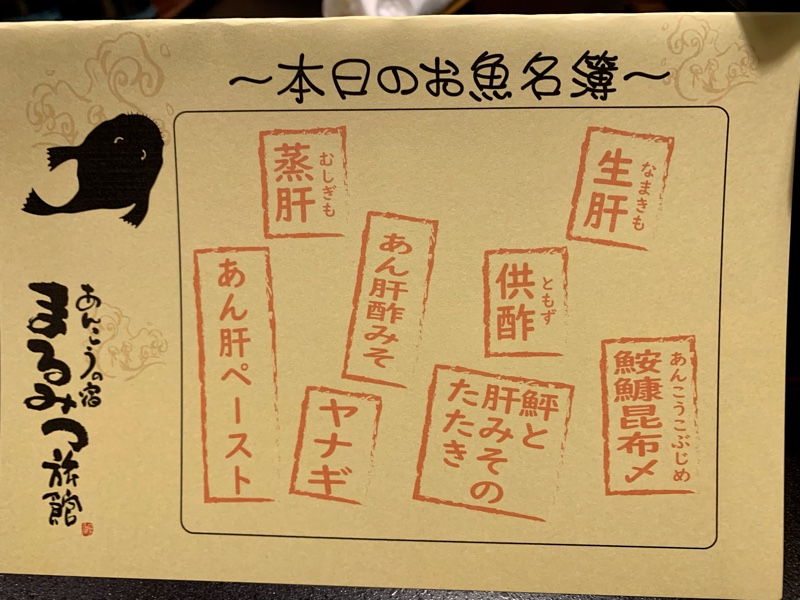 〜本日のお魚名簿〜
生肝
なまきも
蒸肝
むしぎも
供酢
ともず
あん肝酢みそ
あん肝ペースト
鮟鱇昆布〆
あんこうこぶじめ
鮃と
肝みその
たたき
ヤナギ
あんこうの宿
まるみつ旅館